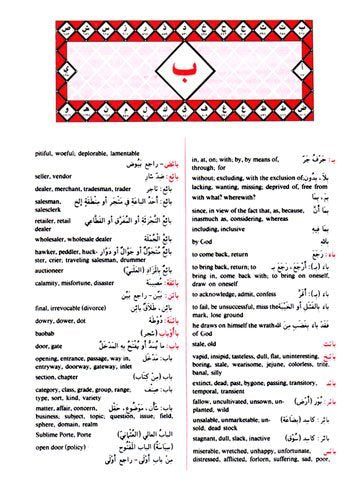 ب
ب : حَرْفُ جَرّ in, at, on; with; by, by means of,
through; for
بِلا، بِدُونِ without; excluding, with the exclusion of;
lacking, wanting, missing; deprived of, free from
بِمَ، بِمَا with what? wherewith?
بِمَا أَنَّ since, in view of the fact that, as, because,
inasmuch as, considering, whereas
بِمَا فِيهِ including, inclusive
بِاللهِ by God
باءَ : رَجَعَ to come back, return
باءَ (بـ) : أَرْجَعَ، رَجَعَ بـ to bring back, return; to
bring in, come back with; to bring on oneself,
draw on oneself
باءَ (بـ) to acknowledge, admit, confess
باءَ بالفَشَلِ أو الخَيْبَة to fail, be unsuccessful, miss the
mark, lose ground
فَقَدْ باءَ بغَضَبٍ مِنَ الله he draws on himself the wrath
of God
بائت stale, old
vapid, insipid, tasteless, dull, flat, uninteresting,
boring, stale, wearisome, jejune, colorless, trite,
banal, silly
extinct, dead, past, bygone, passing, transitory,
temporal, transient
بائر : بُور (أرض) fallow, uncultivated, unsown, un-
planted, wild
بائر : كاسِد (بِضَاعَة) unsalable, unmarketable, un-
sold, dead stock
بائر : كاسِد (سُوق) stagnant, dull, slack, inactive
بائس miserable, wretched, unhappy, unfortunate,
distressed, afflicted, forlorn, suffering, sad, poor,
pitiful, woeful; deplorable, lamentable
بائض - راجع بَيُوض
بائع : ضِدّ شارٍ seller, vendor
بائع : تاجِر dealer, merchant, tradesman, trader
بائع (في مَتْجَرٍ أو مِنطَقةٍ إلخ) salesman,
salesclerk
بائع التَّجْزِئَة أو المُفَرَّق أو القَطَّاعِي retailer, retail
dealer
بائع الجُمْلَة wholesaler, wholesale dealer
بائع مُتَجَوِّل أو جَوَّال أو دَوَّار hawker, peddler, huck-
ster, crier, traveling salesman, drummer
بائع بِالمَزَاد (العَلَنِيّ) auctioneer
بائقة : مُصِيبَة calamity, misfortune, disaster
بائن : بَيِّن - راجع بَيِّن
بائن، طَلاق بائن final, irrevocable (divorce)
بائنة : دُوطَة dowry, dower, dot
باأوباب (شجر) baobab
باب : ما يُسَدُّ أو يُفْتَحُ بِهِ المَدْخَلُ door, gate
باب : مَدْخَل opening, entrance, passage, way in,
entryway, doorway, gateway, inlet
باب (مِن كِتاب) section, chapter
category, class, grade, group, range,
type, sort, kind, variety
باب : شَأْن، مَوْضُوع، حَقْل matter, affair, concern,
business, subject, topic; question, issue; field,
sphere, domain, realm
الباب العالي (العُثْمانيّ) Sublime Porte, Porte
(سِياسَة) الباب المَفْتُوح open door (policy)
مِن باب أَوْلَى - راجع أَوْلَى